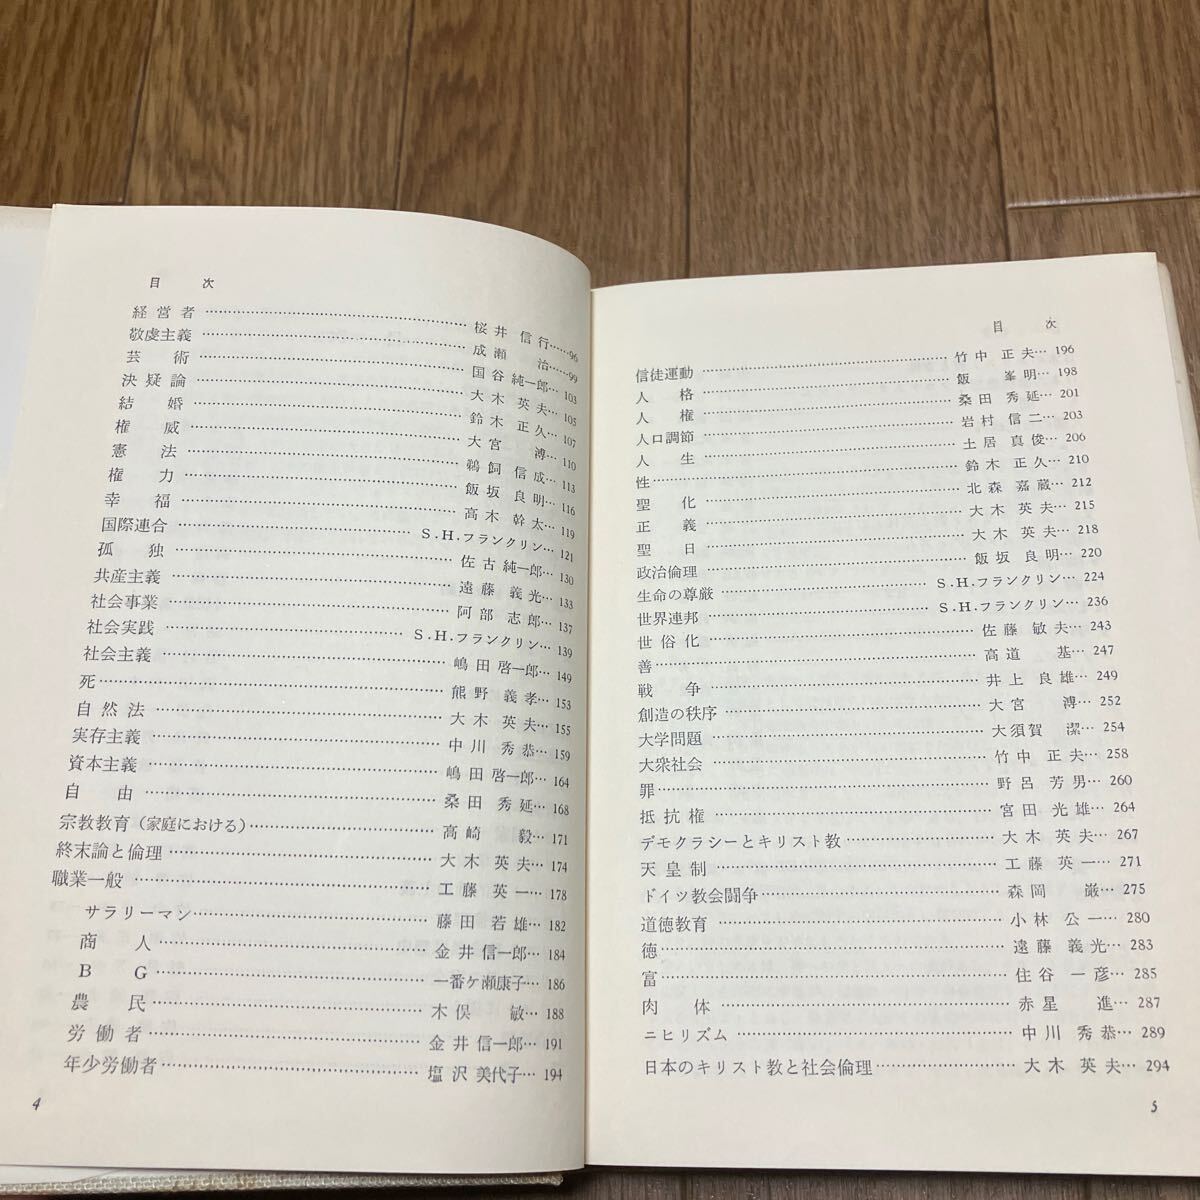 目次
経営者……桜井信行……96
敬虔主義……成瀬治……99
芸術……国谷純一郎…103
決疑論……大木英夫…105
結婚……鈴木正久…107
権威……大宮溥…110
憲法……鵜飼信成…113
権力……飯坂良明…116
幸福……高木幹太…119
国際連合……S.H.フランクリン…121
孤独……佐古純一郎…130
共産主義……遠藤義光…133
社会事業……阿部志郎…137
社会実践……S.H.フランクリン…139
社会主義……嶋田啓一郎…149
死……熊野義孝…153
自然法……大木英夫…155
実存主義……中川秀恭…159
資本主義……嶋田啓一郎…164
自由……桑田秀延…168
宗教教育(家庭における)……高崎毅…171
終末論と倫理……大木英夫…174
職業一般……工藤英一…178
サラリーマン……藤田若雄…182
商人……金井信一郎…184
BG……一番ケ瀬康子…186
農民……木俣敏…188
労働者……金井信一郎…191
年少労働者……塩沢美代子…194
4
目次
信徒運動……竹中正夫…196
人格……飯峯明…198
人権……桑田秀延…201
人口調節……岩村信二…203
人生……土居真俊…206
性……鈴木正久…210
聖化……北森嘉蔵…212
正義……大木英夫…215
聖日……大木英夫…218
政治倫理……飯坂良明…220
生命の尊厳……S.H.フランクリン…224
世界連邦……S.H.フランクリン…236
世俗化……佐藤敏夫…243
善……高道基…247
戦争……井上良雄…249
創造の秩序……大宮溥…252
大学問題……大須賀潔…254
大衆社会……竹中正夫…258
罪……野呂芳男…260
抵抗権……宮田光雄…264
デモクラシーとキリスト教……大木英夫…267
天皇制……工藤英一…271
ドイツ教会闘争……森岡巌…275
道徳教育……小林公一…280
徳……遠藤義光…283
富……住谷一彦…285
肉体……赤星進…287
ニヒリズム……中川秀恭…289
日本のキリスト教と社会倫理……大木英夫…294
5